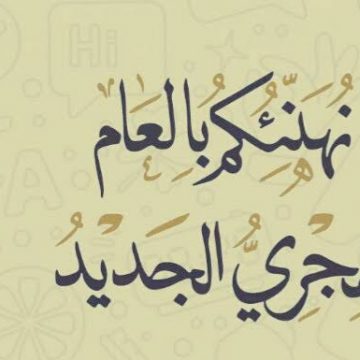 Hi
نُهَنِّئُكُم بِالعَام
ـهِجْرِيُّ الجَدِيدُ
A